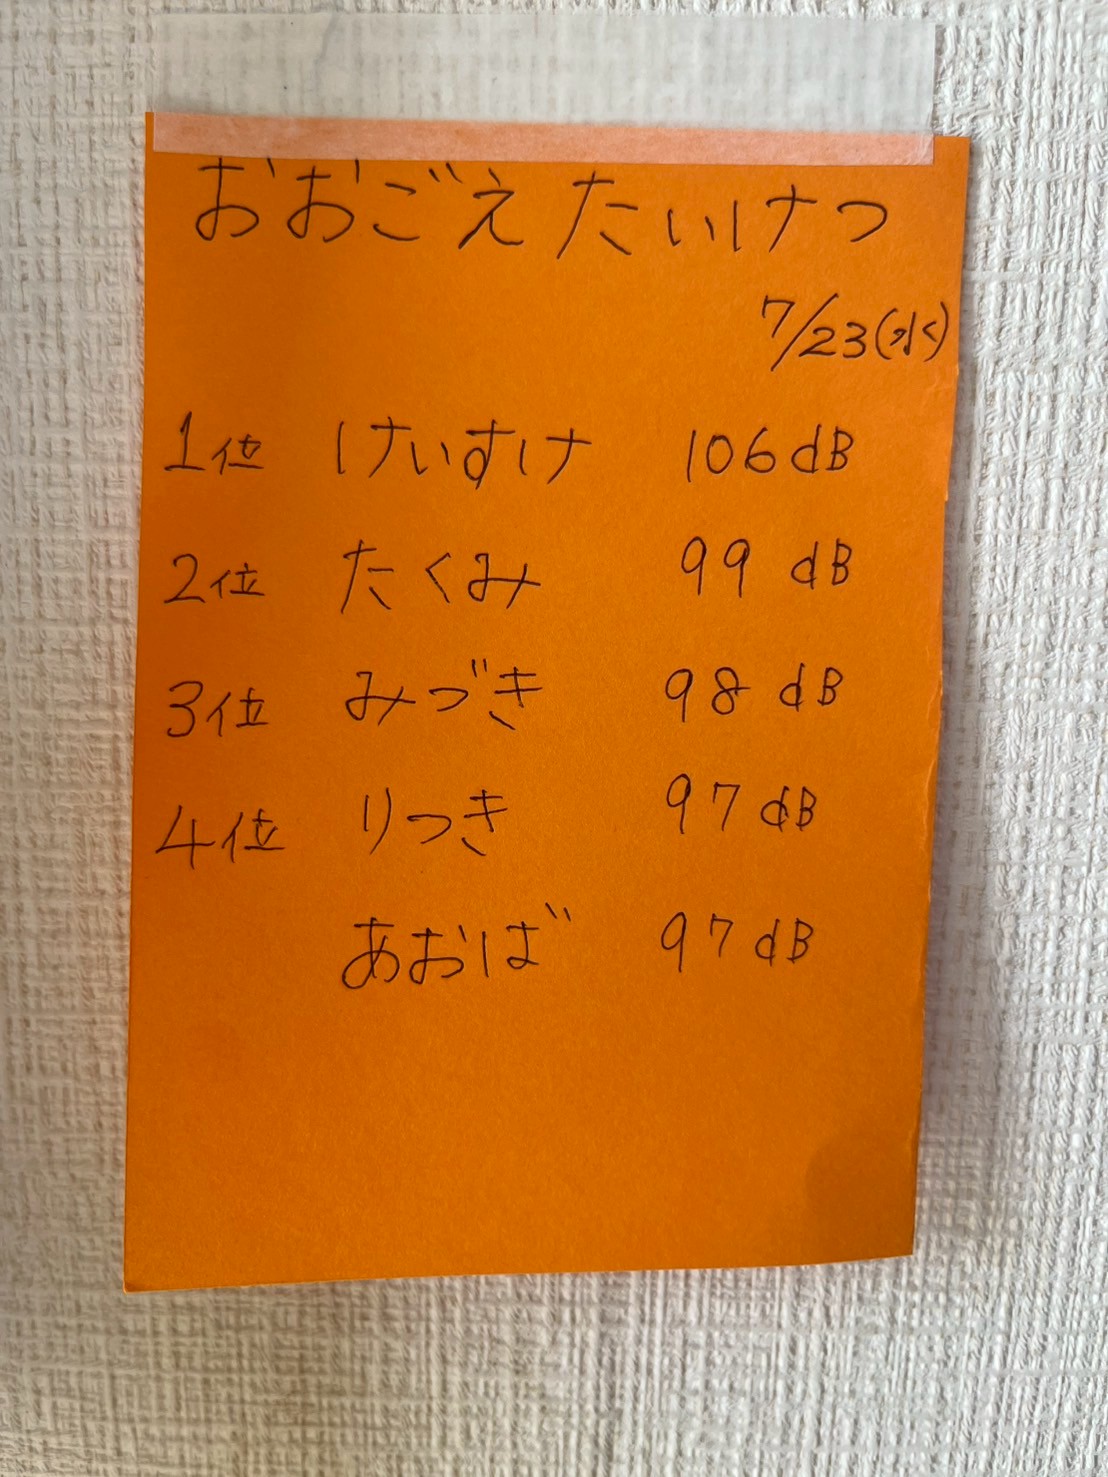 おおごえたいけつ
7/23(水)
1位 けいすけ 106dB
2位 たくみ 99dB
3位 みづき 98dB
4位 りつき 97dB
あおば 97dB